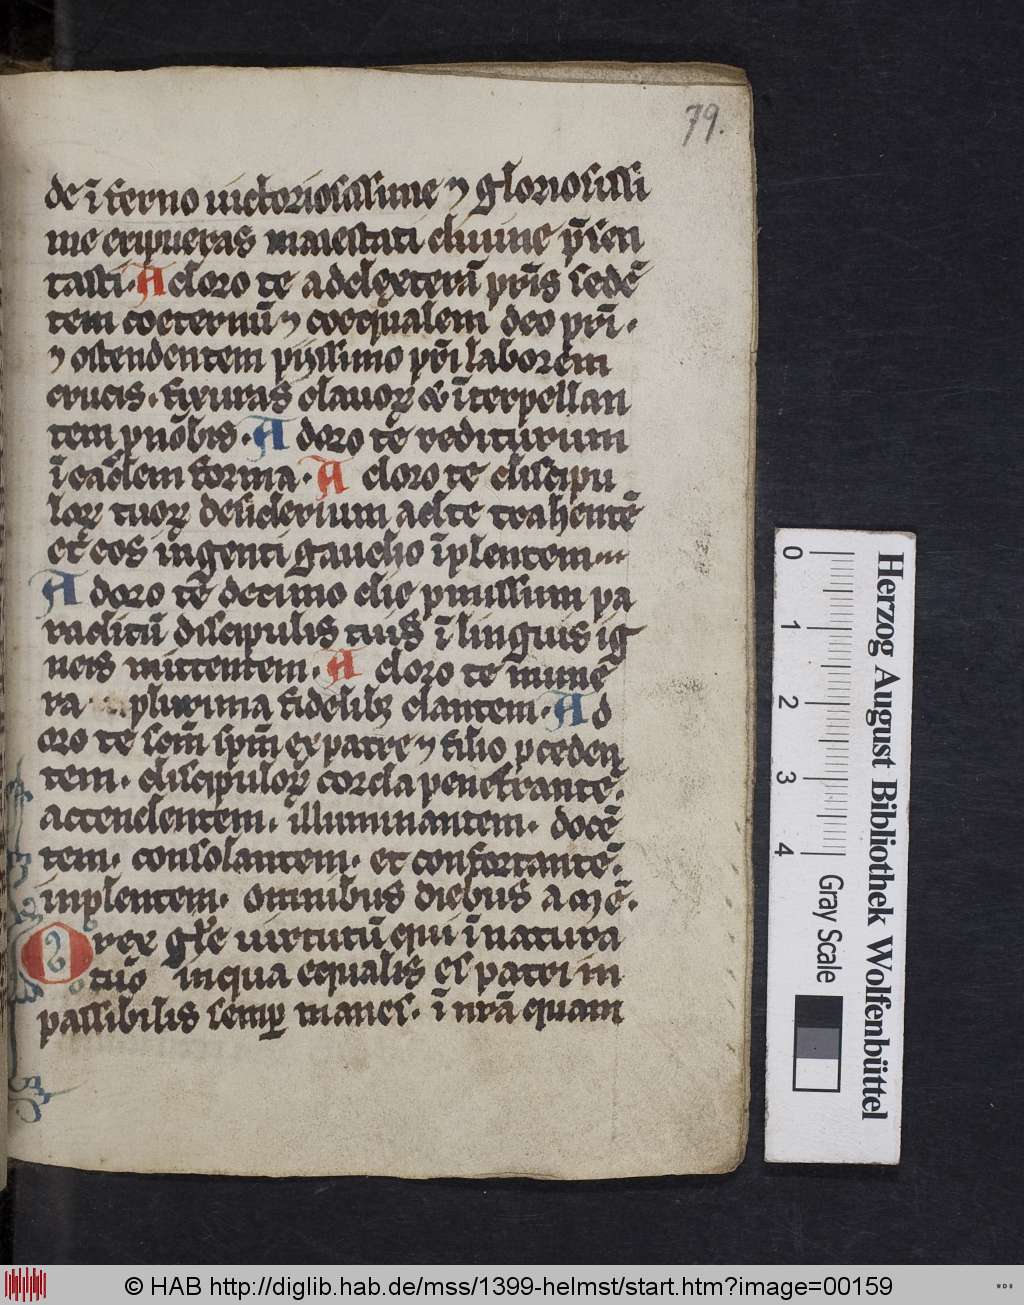 79.
de ī ferno uictoriosissime ⁊ gloriosissi
me eripueras maiestati diuine p̄sen
tasti. Adoro te ad dexterā p̄ris sedē
tem coeternū ⁊ coequalem deo pr̄i.
⁊ ostendentem pijssimo pr̄i laborem
crucis. fixuras clauoꝝ & īterpellan
tem ꝓ nobis. Adoro te rediturum
ī eadem forma. Adoro te discipu
loꝝ tuoꝝ desiderium ad te trahentē
et eos ingenti gaudio īplentem
Adoro te decimo die ꝓmissum pa
raclitū discipulis tuis ī linguis ig
neis mittentem. Adoro te munē
ra plurima fidelibꝫ dantem. Ad
oro te sc̄m sp̄m ex patre ⁊ filio ꝓceden
tem. discipuloꝝ corda penetrantē.
accendentem. illuminantem. docē
tem. consolantem. et confortantē.
inplentem. omnibus diebus amē.
O rex gl̄e uirtutū qui ī natura
tua in qua equalis es patri in
passibilis semꝑ manes. ī nr̄a quam
0 1 2 3 4
Gray Scale
Herzog August Bibliothek Wolfenbüttel
© HAB http://diglib.hab.de/mss/1399-helmst/start.htm?image=00159